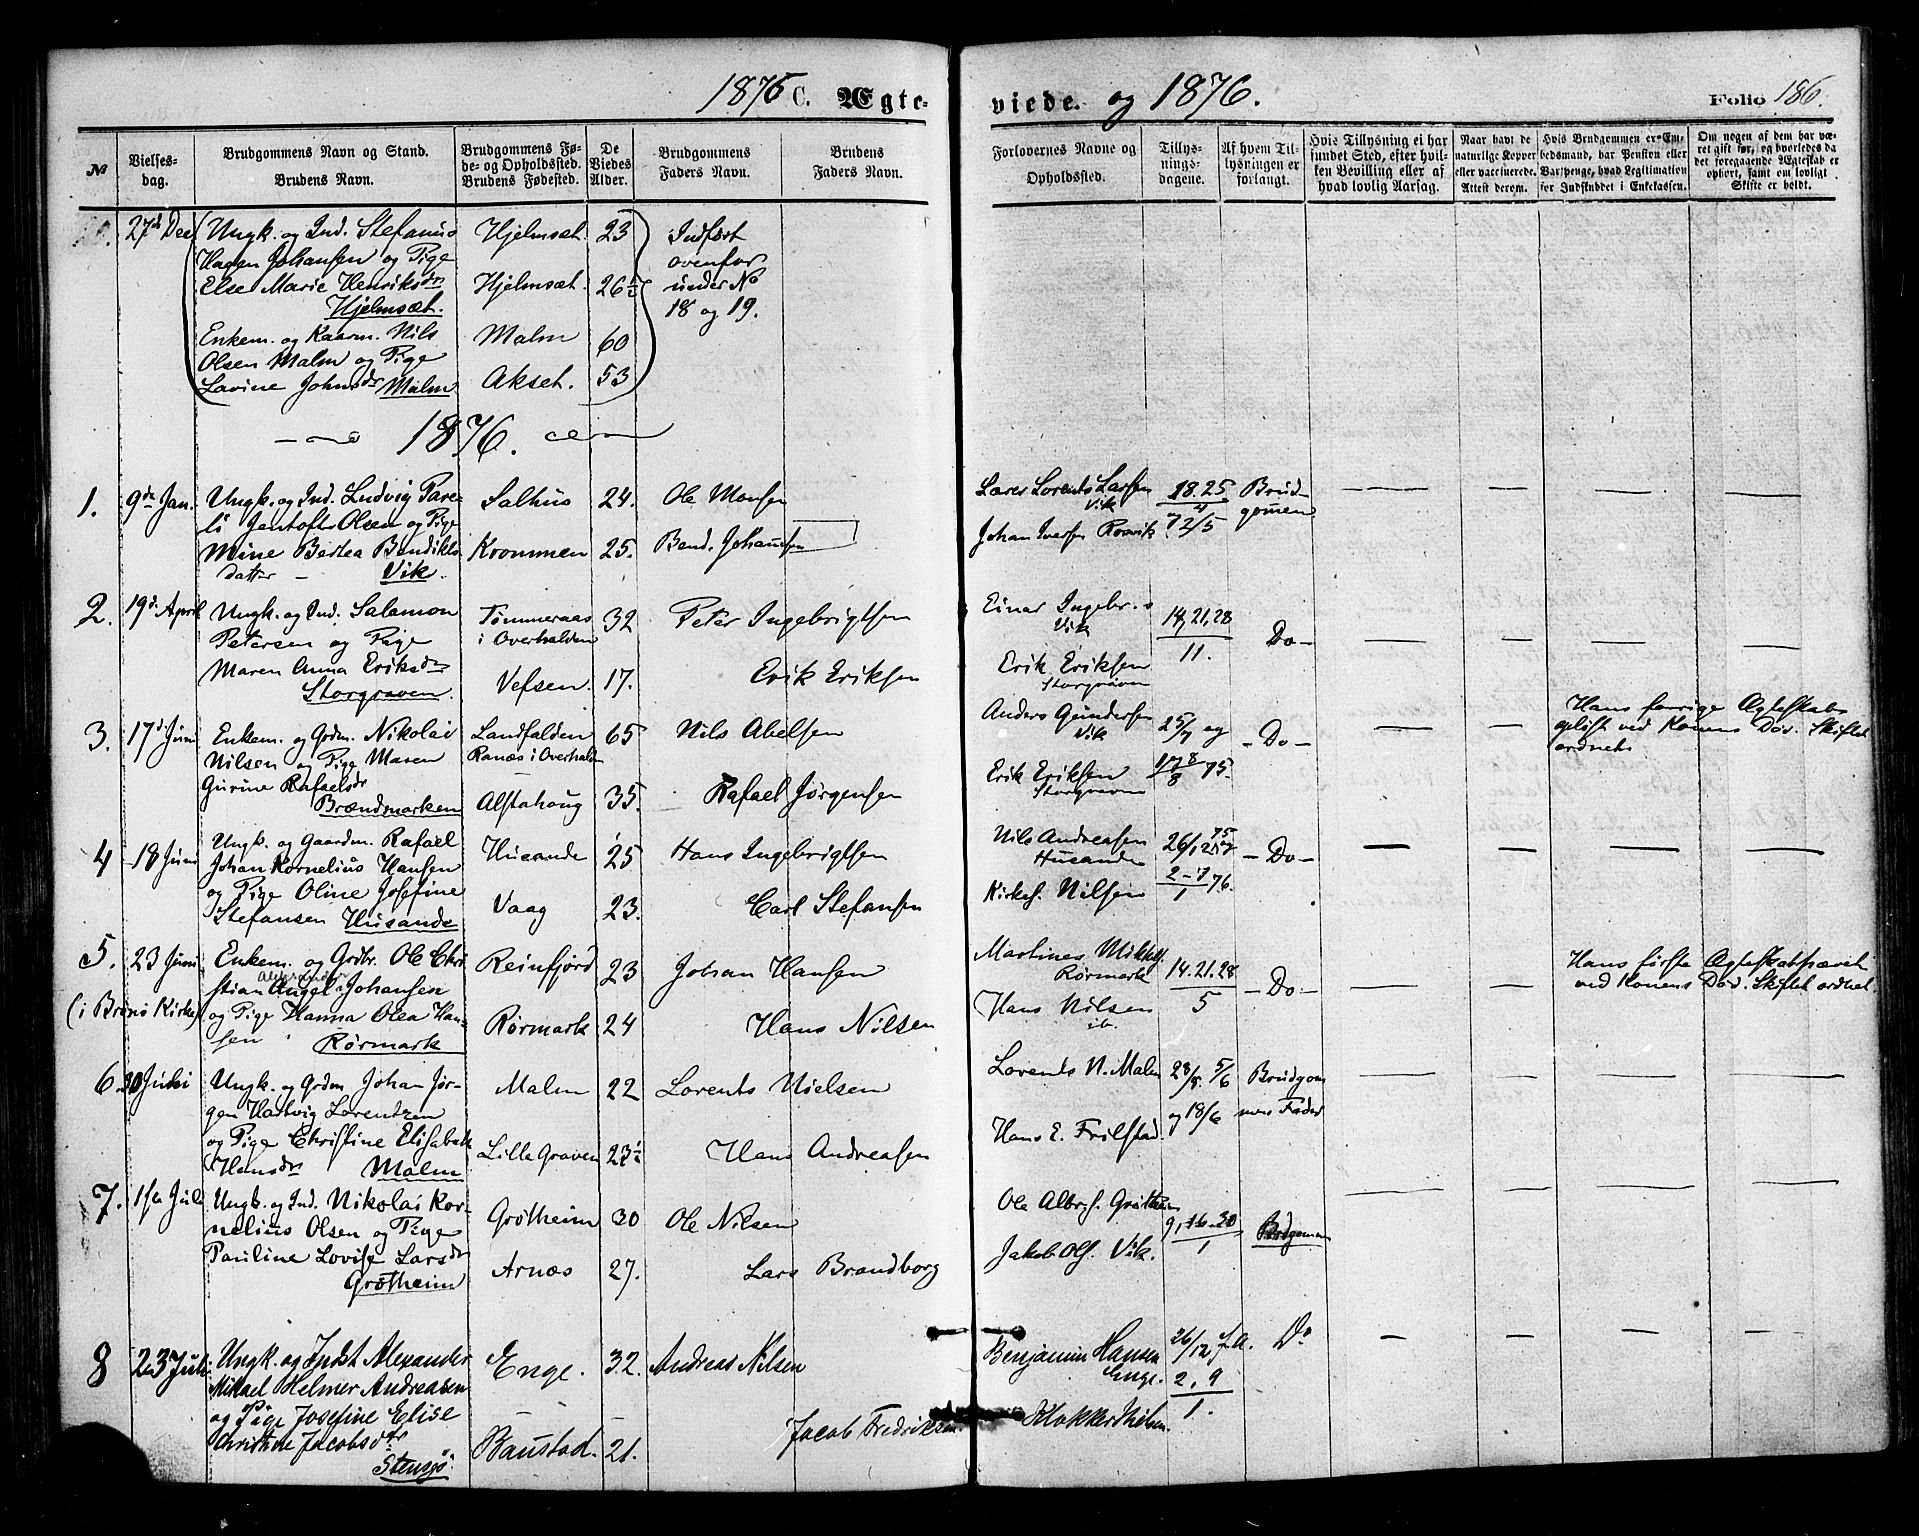 1875 C. Ægte-
viede. og 1876.
Folio 186.
№
Vielses-
dag.
Brudgommens Navn og Stand.
Brudens Navn.
Brudgommens Fø-
de- og Opholdssted.
Brudens Fødested.
De
Viedes
Alder.
Brudgommens
Faders Navn.
Brudens
Faders Navn.
Forlovernes Navne og
Opholdssted.
Tillys-
nings-
dagene.
Af hvem Til-
lysningen er
forlangt.
Hvis Tillysning ei har
fundet Sted, efter hvil-
ken Bevilling eller af
hvad lovlig Aarsag.
Naar havt de
naturlige Kopper
eller vaccinerede.
Attest derom.
Hvis Brudgommen er Em-
bedsmand, har Pension eller
Vartpenge, hvad Legitimation
for Indskuddet i Enkekassen.
Om nogen af dem har væ-
ret gift før, og hvorledes da
det foregaaende Ægteskab er
ophørt, samt om lovligt
Skifte er holdt.
27de Dec
Ungk. og Ind. Stefanus Hjelmsæt. 23 Indført
Hagen Johansen og Pige ovenfor
Else Marie Henriksdr Hjelmsæt. 26½ under No
Hjelmsæt. 18 og 19.
Enkem. og Kaarm. Nils Malm 60
Olsen Malm og Pige
Lovine Johnsdr Malm Akset. 53
1876.
1. 9de Jan. Ungk. og Ind. Ludvig Pare- Salhus 24. Ole Monsen Lærer Lorents Larsen 18. 25 Brud-
li Jentoft Olsen og Pige Vik 4 gomen
Mine Bertea Bendikts Krommen 25. Bend. Johansen Johan Iversen Rorvik 72/5
datter - Vik.
2. 19de April Ungk. og Ind. Salamon Tømmeraas 32 Peter Ingebrigtsen Einar Ingebr.s 14,21,28
Petersen og Pige i Overhalden Vik 11. Do-
Maren Anna Eriksdr Vefsen. 17. Erik Eriksen Erik Eriksen
Storgraven. Storgraven
3. 17de Juni Enkem. og Grdm. Nikolai Landfalden 65 Nils Abelsen Anders Gundersen 25/7 og -Do- Hans forrige Ægteskab
Nilsen og Pige Maren Ranæs i Overhald Vik opløst ved Konens Død. Skiftet
Gurine Rafaelsdr Erik Eriksen 75. ordnet
Brændmarken Alstahoug 35. Rafael Jørgensen Storgraven
4 18 Juni Ungk. og Gaardm. Rafael Husande 25 Hans Ingebrigtsen Nils Andreasen 26/12 75 -Do-
Johan Kornelius Hansen Husande
og Pige Oline Josefine Vaag 23. Carl Stefansen Kirkes. Nilsen 2-7/1 76.
Stefansen Husande
5. 23 Juni Enkem. og Grdbr. Ole Chri Reinfjord 23 Johan Hansen Martines Mikkels. 14.21.28 -Do- Hans første Ægteskab hævet
stian Johansen Rørmark 5 ved Konens Død. Skiftet ordnet.
(i Brønø Kirke) og Pige Hanna Olea Han- Rørmark 24 Hans Nilsen Hans Nilsen
sen Rørmark ib.
6. 30 Juli Ungk. og Grdm Johan Jør- Malm 22 Lorents Nielsen Lorents N. Malm 28/5. 5/6 Brudgom
gen Hartvig Lorentzen og 18/6 mens Fader
og Pige Christine Elisabeth Lille Graven 23½ Hans Andreasen Hans E. Frilstad.
Hansdr Malm
7. 1ste Juli Ungk. og Ind. Nikolai Kor- Grøtheim 30 Ole Nilsen Ole Albr.s. Grøtheim
nelius Olsen og Pige 9, 16-30 Brdgomen
Pauline Lovise Larsdr Arnæs 27. Lars Brandborg Jakob Ols. Vik. 1
Grøtheim
8 23 Juli Ungk. og Indst Alexander Enge. 32. Andreas Nilsen Benjamin Hansen 26/12 f.a. Do
Mikael Helmer Andreasen Enge. 2, 9
og Pige Josefine Elise 1.
Christine Jacobsdtr Baustad. 21. Jacob Fredriksen. Klokker Nilsen.
Stensø.